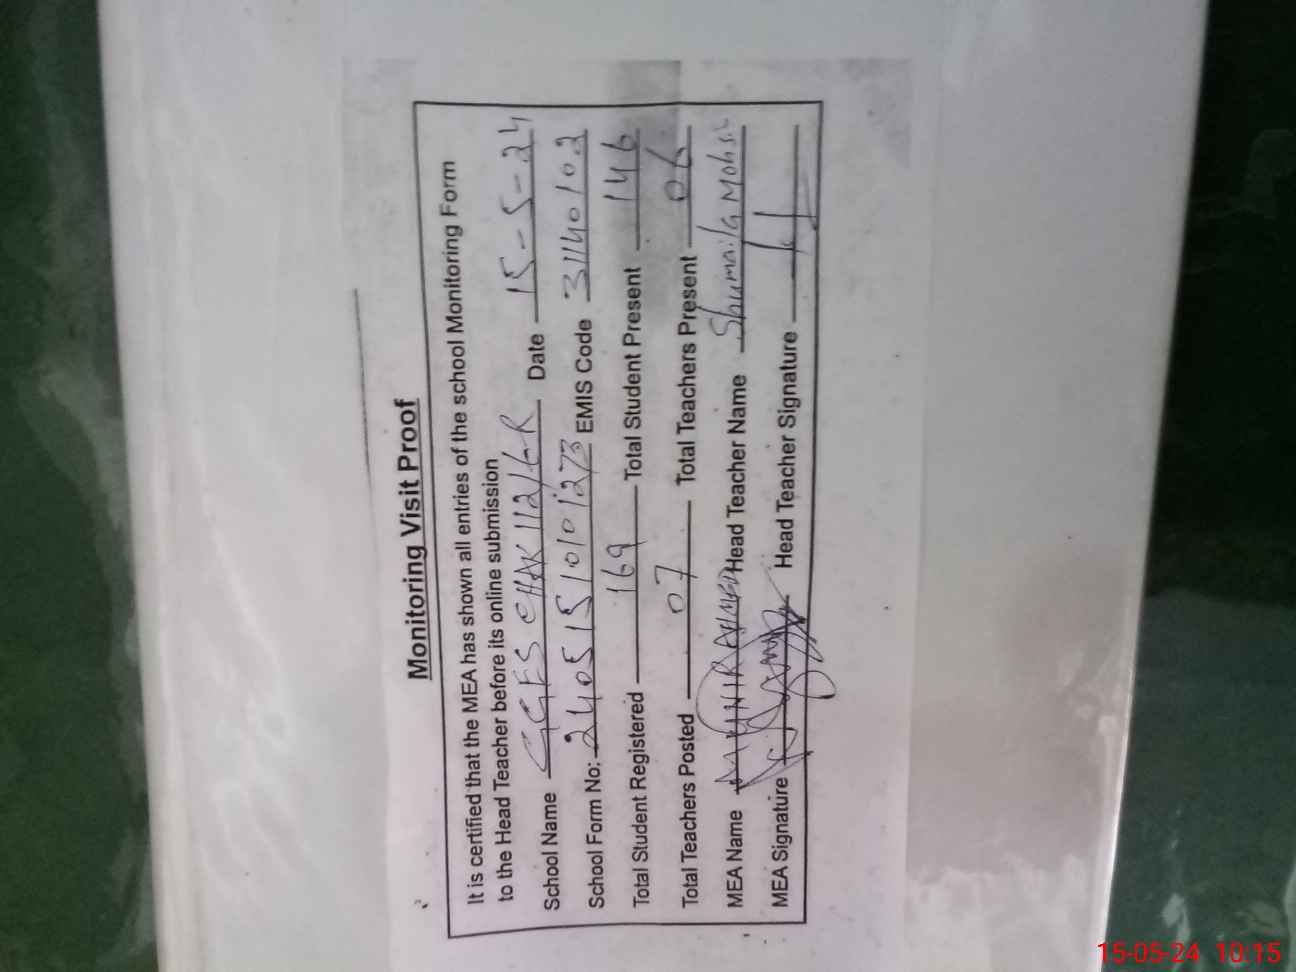 Monitoring Visit Proof
It is certified that the MEA has shown all entries of the school Monitoring Form
to the Head Teacher before its online submission
School Name GGES CHAK 112/6-R Date 15-5-24
School Form No: 24051510101273 EMIS Code 31140102
Total Student Registered 169 Total Student Present 146
Total Teachers Posted 07 Total Teachers Present 06
MEA Name M MUNIR AHMED Head Teacher Name Shumaila Mohsin
MEA Signature Head Teacher Signature
15-05-24 10:15